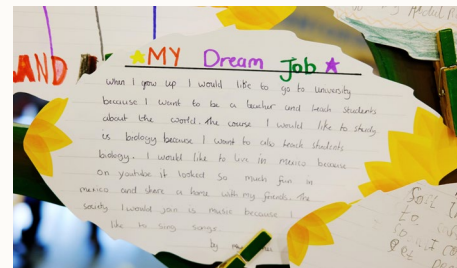 AND
MY Dream Job
When I grow up I would like to go to university
because I want to be a teacher and teach students
about the world. The course I would like to study
is biology because I want to also teach students
biology. I would like to live in mexico because
on youtube it looked so much fun in
mexico and share a home with my friends. The
society I would join is music because I
like to sing songs.
by